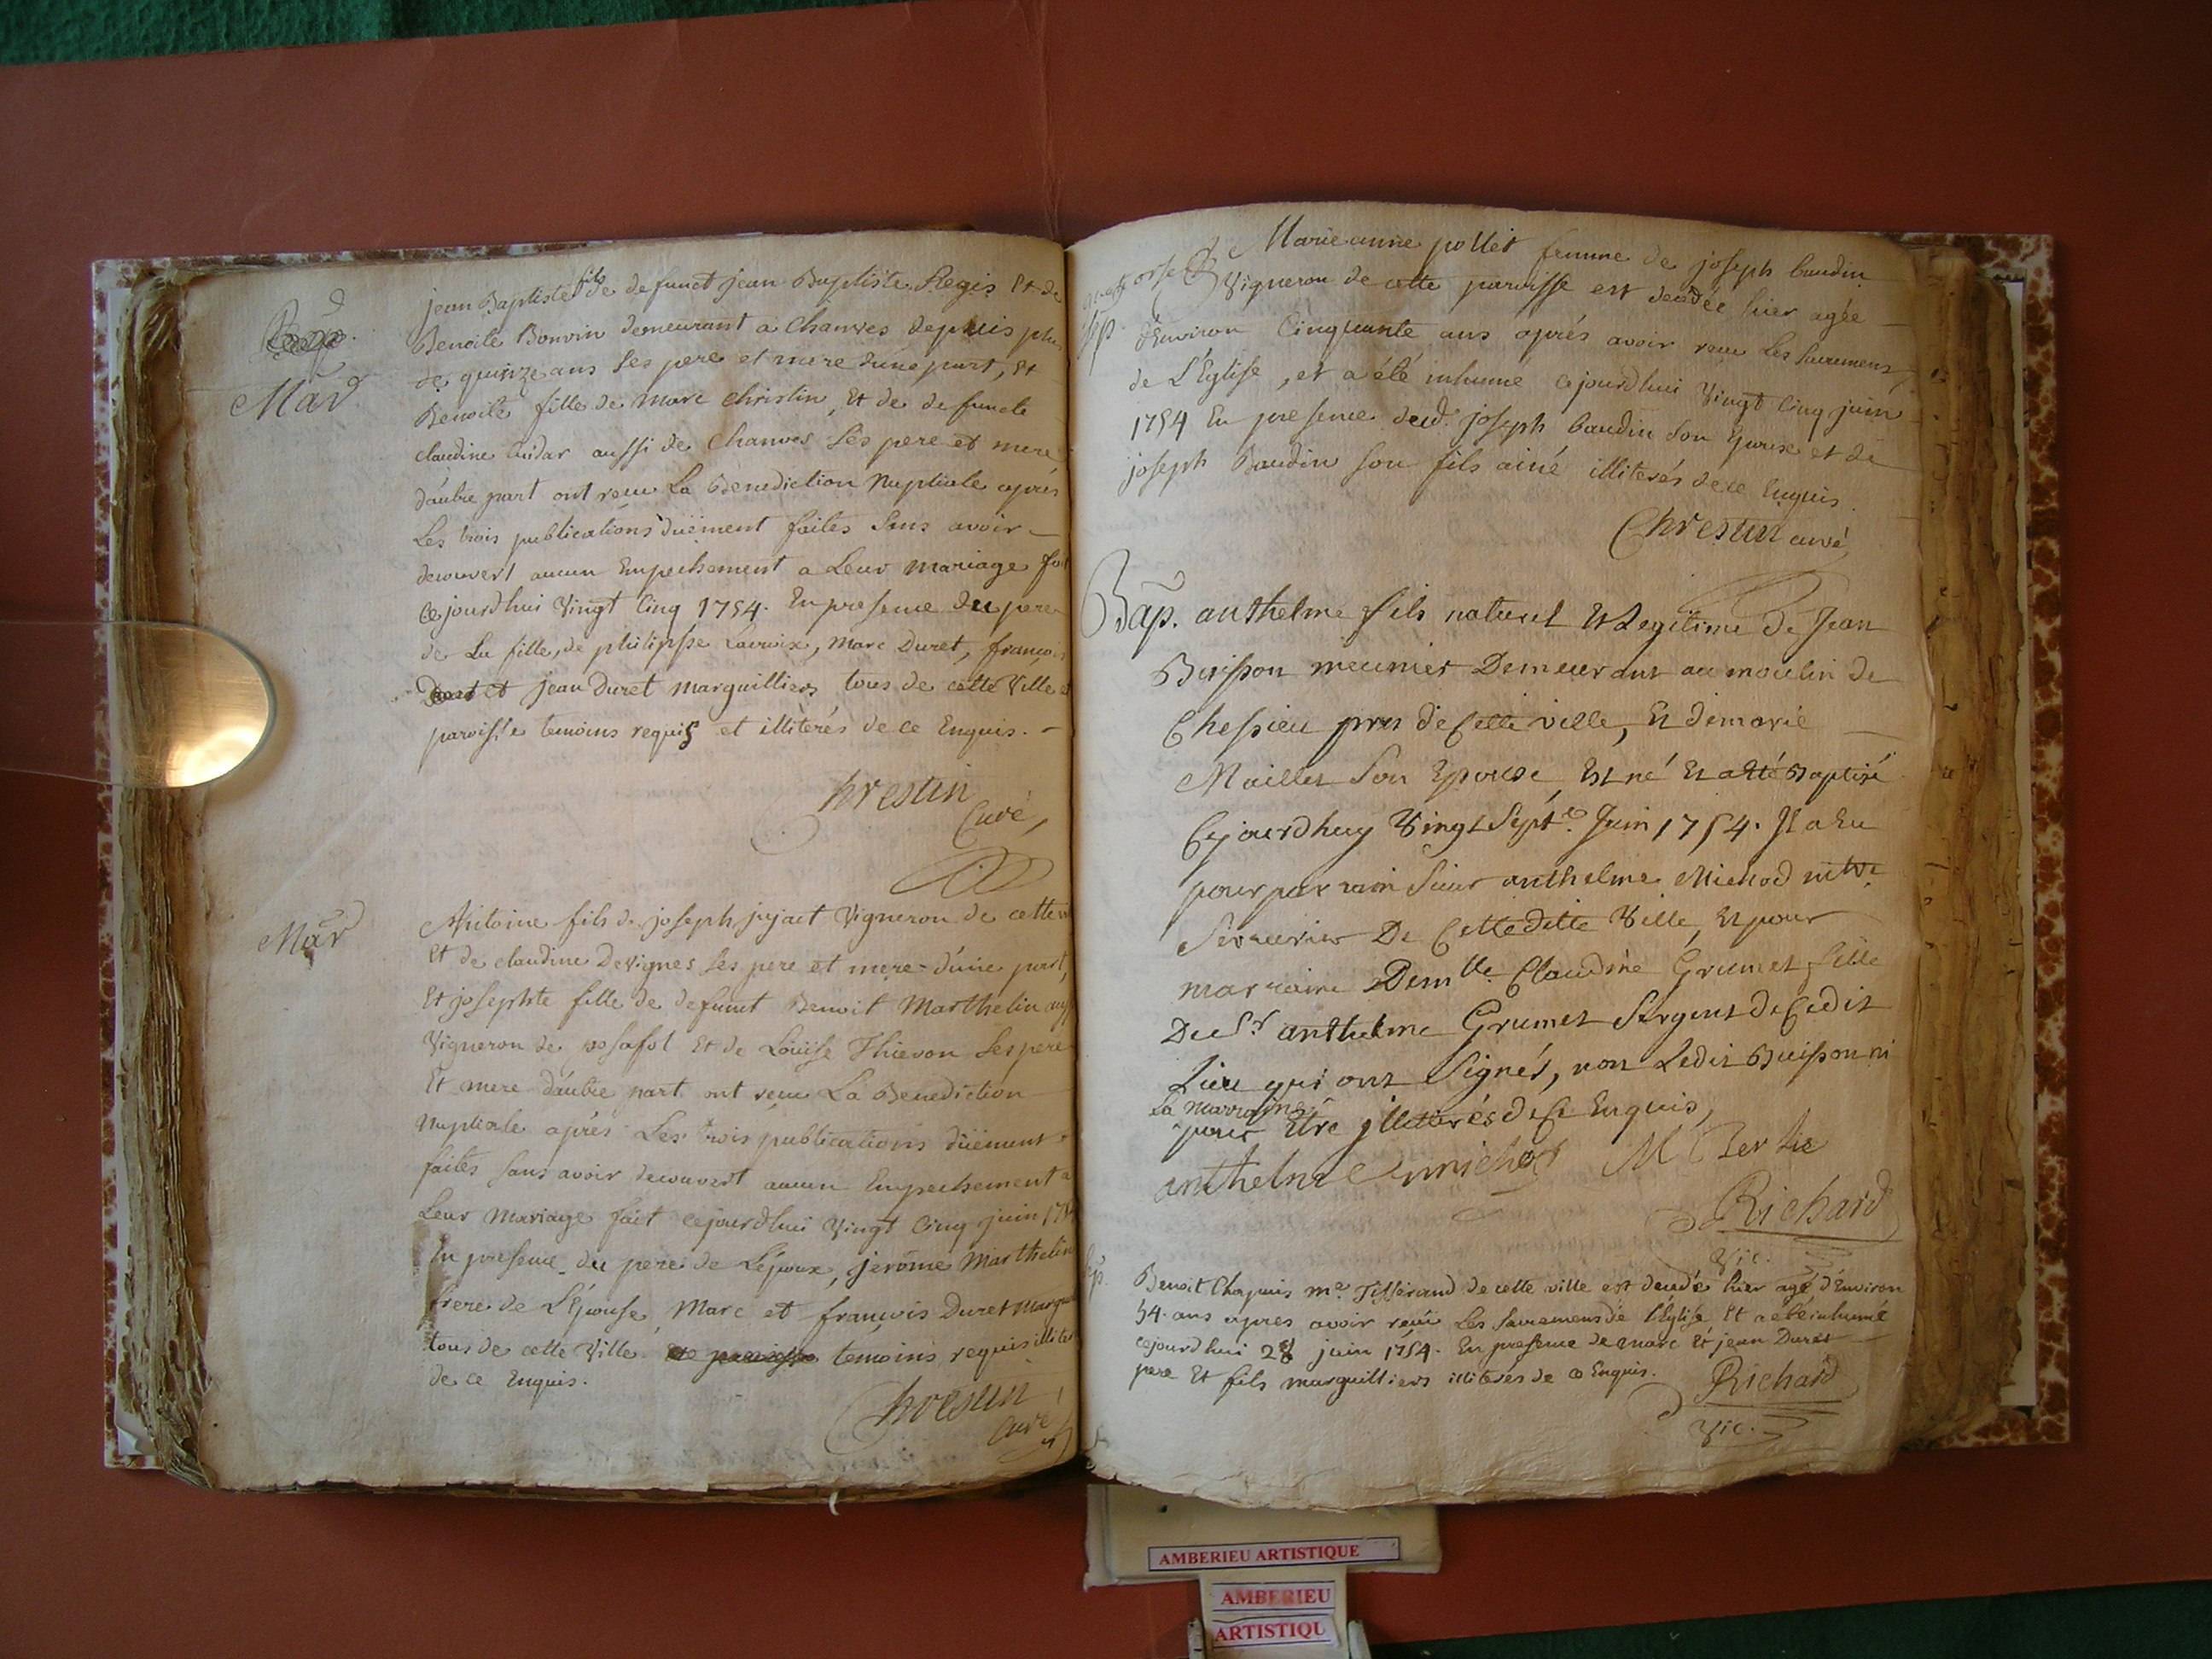 Mar
jean Baptiste fils de defunct jean Baptiste Regis Et de
Benoite Bonvin demeurant a Chanves depuis plus
de quinze ans ses pere et mere dune part, Et
Benoite fille de Marc Christin, Et de defuncte
claudine Audar aussi de Chanves ses pere et mere
d'autre part ont receu La Benediction Nuptiale aprés
Les trois publications düement faites sans avoir
decouvert aucun Empechement a Leur mariage fait
Cejourdhui Vingt Cinq 1754. En presence du pere
de La fille, de philippe Lacroix, Marc Duret, françois
et jean Duret Marguilliers tous de cette Ville et
paroisse temoins requis et illiterés de ce Enquis.
Chrestin
Curé,
Mar
Antoine fils de joseph jujat Vigneron de cette
Et de claudine Devignes ses pere et mere d'une part,
Et josephte fille de defunct Benoit Marthelin
Vigneron de Et de Loüise Thievon ses pere
Et mere d'autre part ont receu La Benediction
Nuptiale aprés Les trois publications düement
faites sans avoir decouvert aucun Empechement a
Leur Mariage fait cejourdhui Vingt Cinq juin
En presence du pere de L'époux, jerôme Marthelin
frere de L'Epouse, Marc et françois Duret
tous de cette Ville temoins requis
de ce Enquis.
Chrestin
Curé
Sep
Marie anne pollet femme de joseph baudin
Vigneron de cette paroisse est decedée hier agée
d'Environ Cinquante ans aprés avoir receu Les Sacremens
de L'Eglise, et a été inhumé cejourdhui Vingt Cinq juin
1754 En presence dud. joseph baudin son Epoux et de
joseph Baudin son fils ainé illiterés de ce Enquis.
Chrestin curé
Bap. anthelme fils naturel Et Legitime de Jean
Buisson meunier Demeurant au moulin de
Chessieu pres de Cette ville, Et de marie
Maillet Son Epouse, Est né Et a Eté Baptisé
Cejourdhuy Vingt Sept.e Juin 1754. Il a Eu
pour parrain Sieur anthelme Michod mtre
Serrurier De Cettedite Ville, Et pour
marraine Demlle Claudine Grumet fille
Du Sr anthelme Grumet Sergent de Cedit
Lieu qui ont Signés, non Ledit Buisson ni
la marraine
pour Etre illiterés de Ce Enquis,
anthelme michod
Richard
Vic.
Benoit Chapuis me Tisserand de cette ville est decedé hier agé d'Environ
54. ans apres avoir recû Les Sacremens de l'Eglise Et a eté inhumé
cejourdhui 28 juin 1754. En presence de marc Et jean Duret
pere Et fils marguilliers illiterés de ce Enquis.
Richard
Vic.
AMBERIEU ARTISTIQUE
AMBERIEU
ARTISTIQU